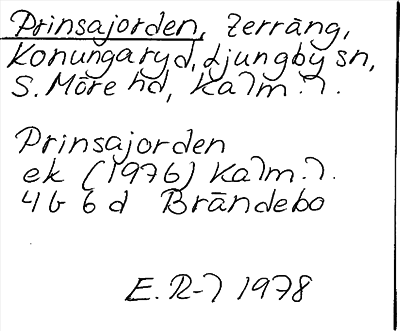 Prinsajorden, Terräng,
Konungaryd, Ljungby sn,
S. Möre hd, Kalm. l.
Prinsajorden
ek (1976) Kalm. l.
4G 6d Brändebo
E. R-l 1978